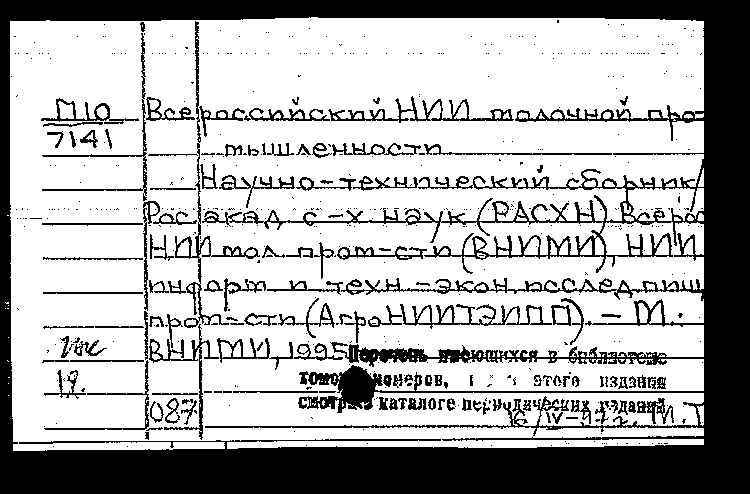 П10 Всероссийский НИИ молочной про-
7141
мышленности.
Научно-технический сборник/
Рос. акад. с-х наук (РАСХН) Всерос
НИИ мол. пром-сти (ВНИМИ), НИИ
информ. и техн.-экон. исслед. пищ.
пром-сти (АгроНИИТЭИПП). – М.:
ВНИМИ, 1995
Перечень имеющихся в библиотеке
номеров, этого издания
смотри в каталоге периодических изданий
087
16/IV-97г. М.Т